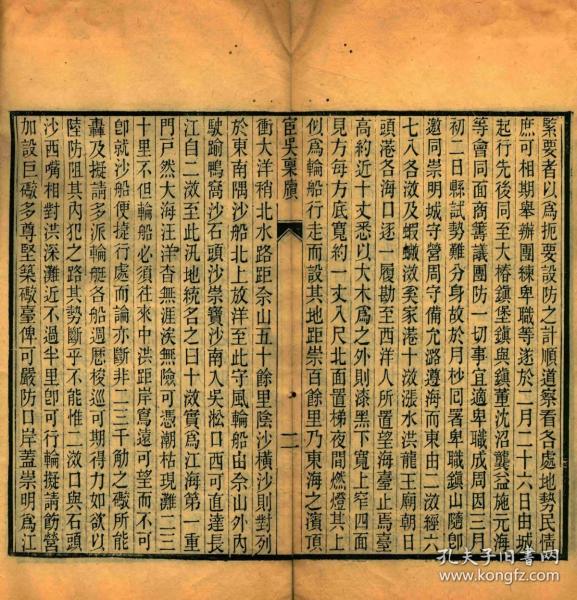 緊要者以爲扼要設防之計順道察看各處地勢民情
庶可相期舉辦團練卑職等遂於二月二十六日由城
起行先後同至大椿鎮堡鎮與鎮董沈沼龔益施元海
等會同面商籌議團防一切事宜適卑職成周因三月
初二日縣試勢難分身故於月杪囘署卑職鎮山隨卽
邀同崇明城守營周守備允潞遵海而東由二滧經六
七八各滧及蝦蠏滧奚家港十滧漲水洪龍王廟朝日
頭港各海口逐一履勘至西洋人所置望海臺止焉臺
高約近十丈悉以大木爲之外則漆黑下寬上窄四面
見方每方底寬約一丈八尺北面置梯夜間燃燈其上
似爲輪船行走而設其地距崇百餘里乃東海之濱頂
宦吳稟牘
二
衝大洋稍北水路距佘山五十餘里陰沙橫沙則對列
於東南隅沙船北上放洋至此守風輪船由佘山外內
駛踰鴨窩沙石頭沙崇寶沙南入吳淞口西可直達長
江自二滧至此汛地統名之曰十滧實爲江海第一重
門戸然大海汪洋杳無涯涘無險可憑潮枯現灘二三
十里不但輪船必須往來中洪距岸寫遠可望而不可
卽就沙船便捷行處而論亦斷非二三千觔之礮所能
轟及擬請多派輪艇各船週歷梭巡可期得力如欲以
陸防阻其內犯之路其勢斷乎不能惟二滧口與石頭
沙西嘴相對洪深灘近不過半里卽可行輪擬請飭營
加設巨礮多尊堅築礮臺俾可嚴防口岸蓋崇明爲江
孔夫子旧书网
www.kongfz.com